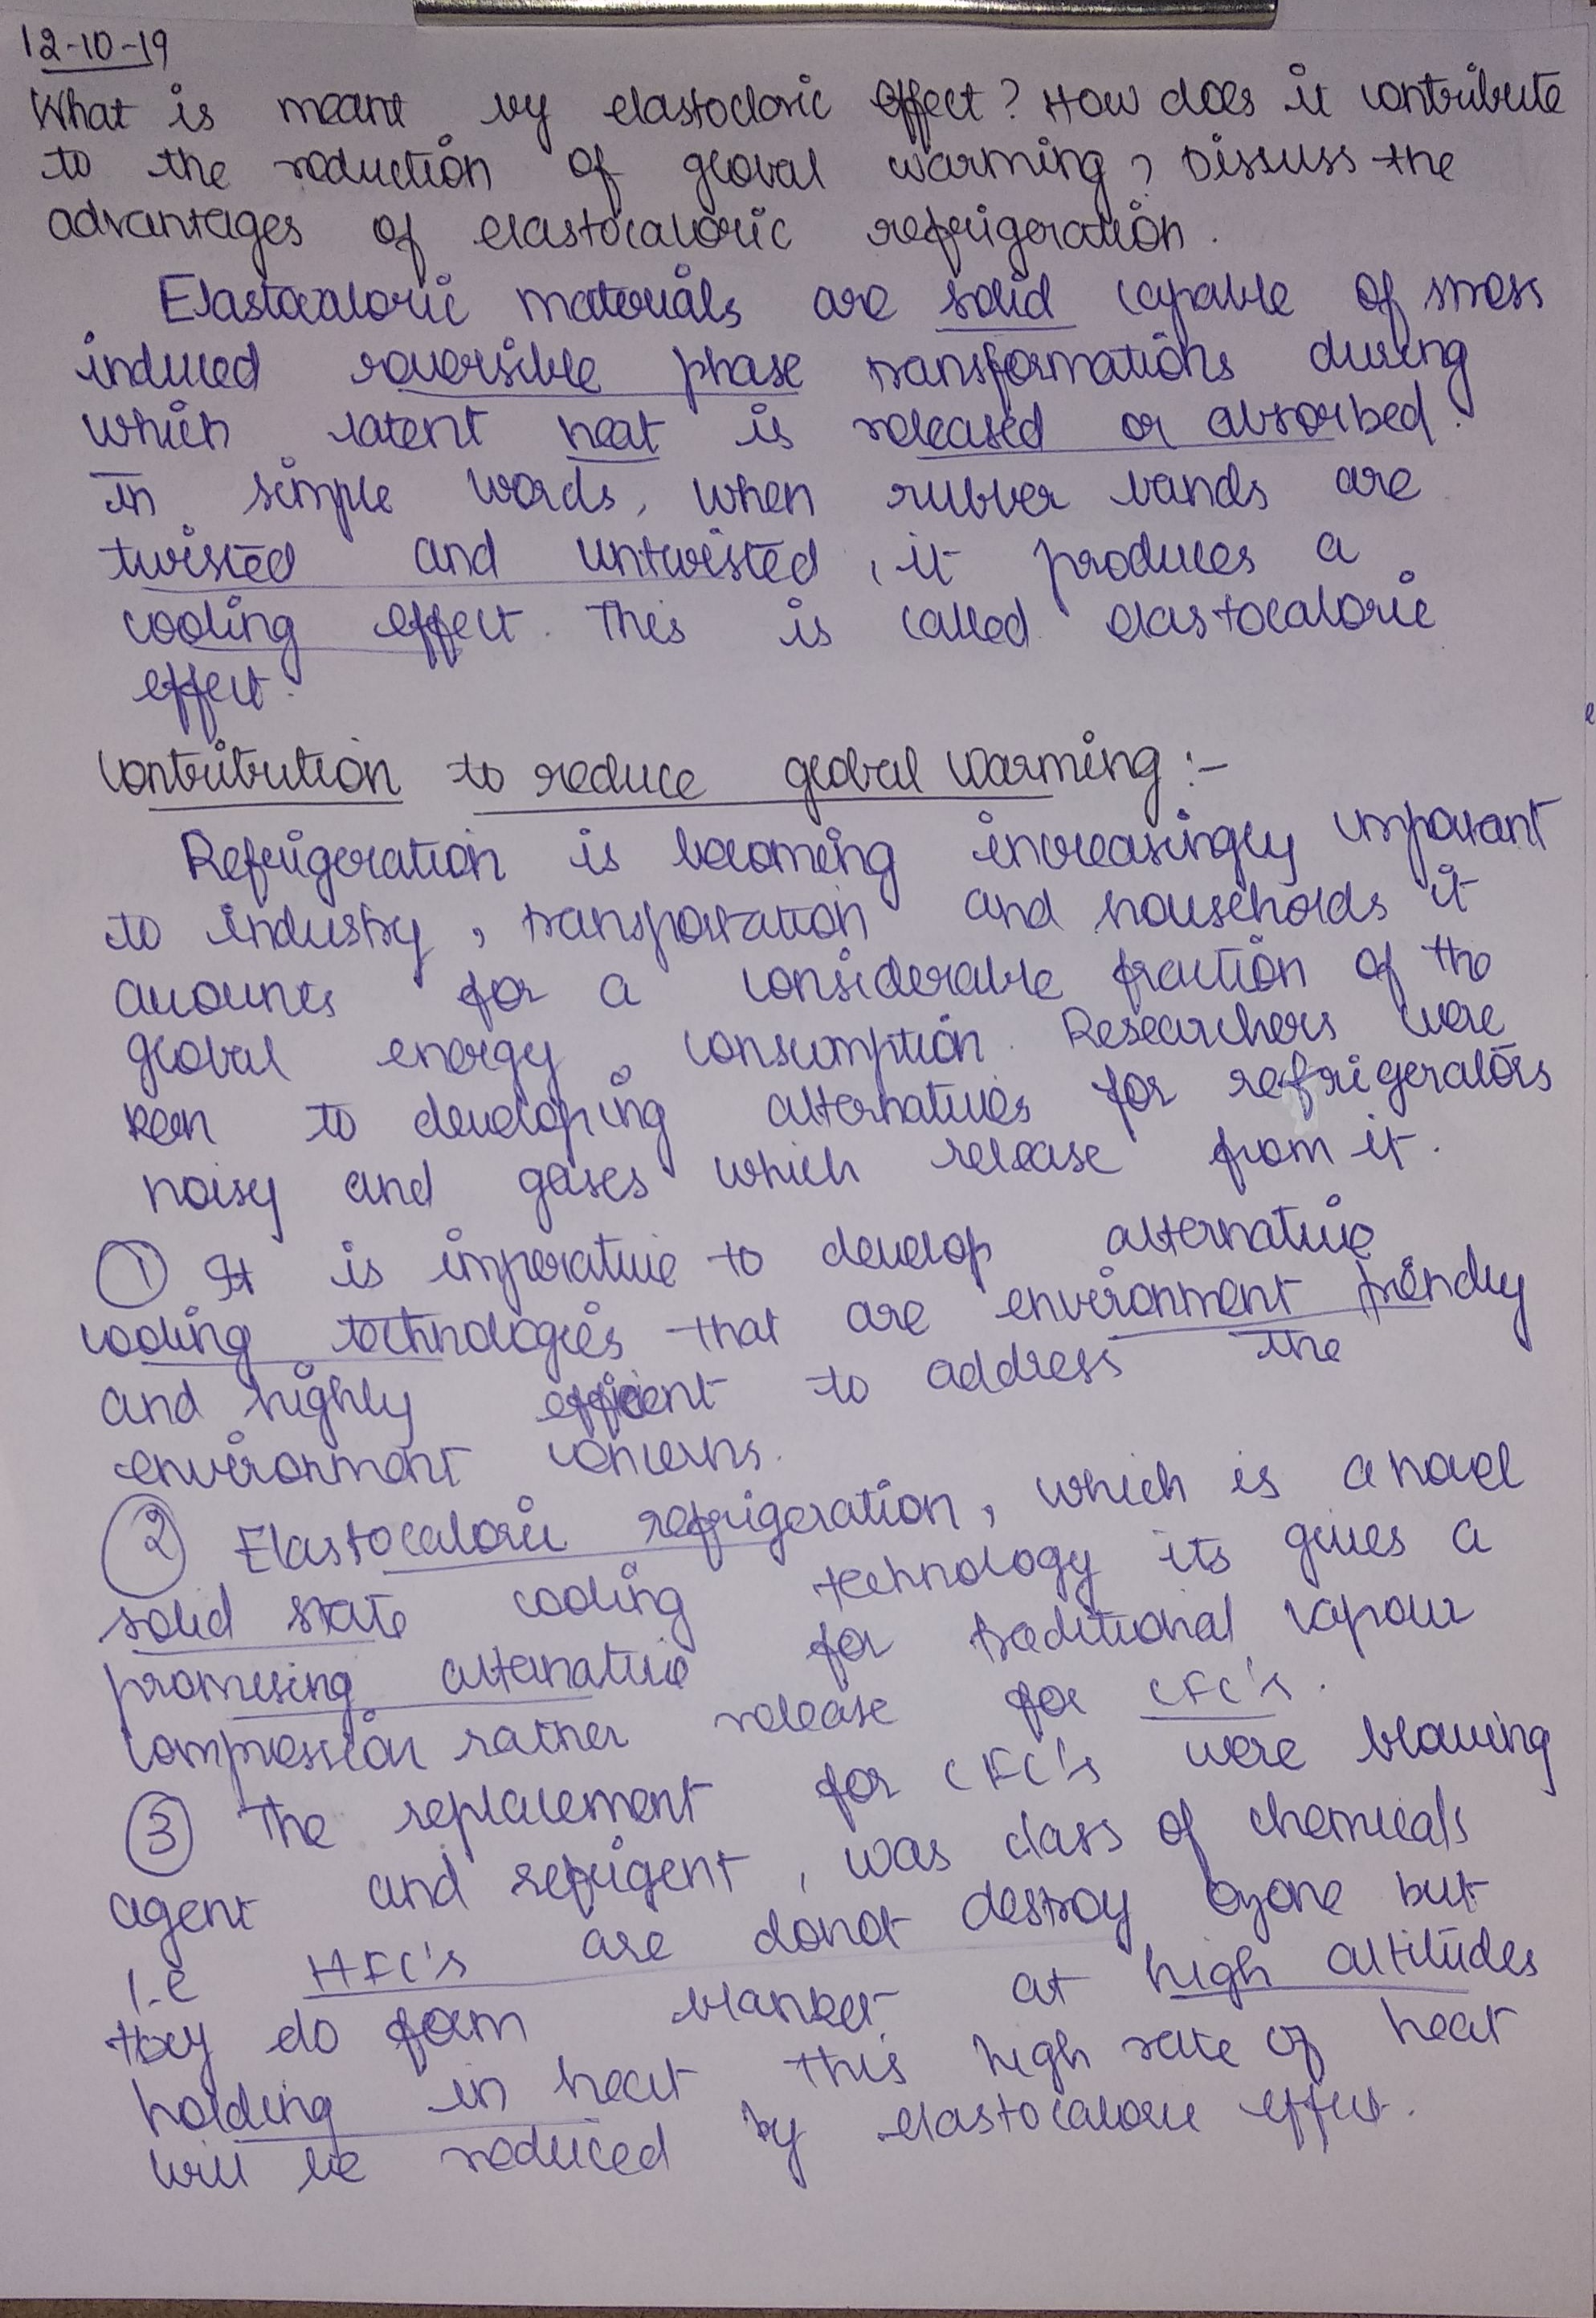 12-10-19
What is meant by elastocloric effect? How does it contribute
to the reduction of global warming? Discuss the
advantages of elastocaloric refrigeration.
Elastocaloric materials are solid capable of stress
induced reversible phase transformations during
which latent heat is released or absorbed.
In simple words, when rubber bands are
twisted and untwisted, it produces a
cooling effect. This is called elastocaloric
effect.
Contribution to reduce global warming :-
Refrigeration is becoming increasingly important
to industry, transportation and households it
accounts for a considerable fraction of the
global energy consumption. Researchers were
keen to developing alternatives for refrigerators
noisy and gases which release from it.
① It is imperative to develop alternative
cooling technologies that are environment friendly
and highly efficient to address the
environment concerns.
② Elastocaloric refrigeration, which is a novel
solid state cooling technology its gives a
promising alternative for traditional vapour
compression rather release for CFC's.
③ The replacement for CFC's were blowing
agent and refrigent, was class of chemicals
i.e HFC's are donot destroy ozone but
they do form blanket at high altitudes
holding in heat this high rate of heat
will be reduced by elastocaloric effect.